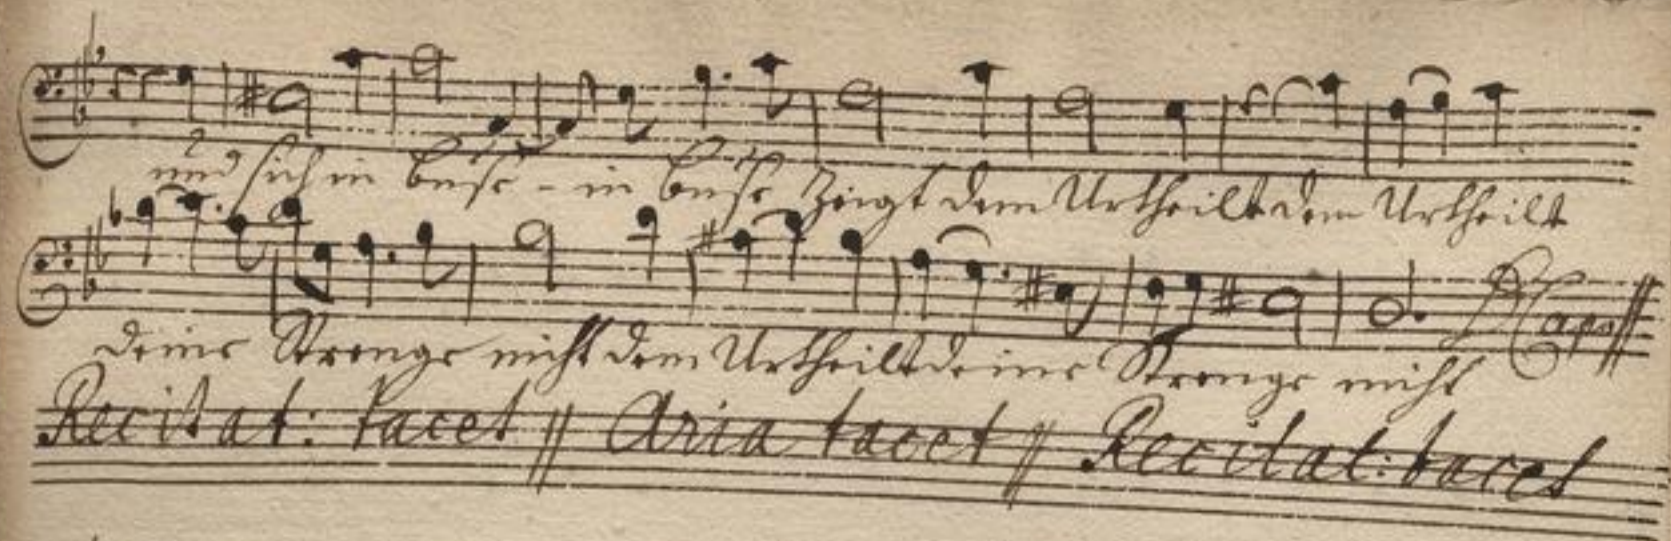 und sich in buße - in buße zeigt dem Urtheilt dem Urtheilt
D Capo
deine Strenge nicht dem Urtheilt deine Strenge nicht
Recitat: tacet // Aria tacet // Recitat: tacet